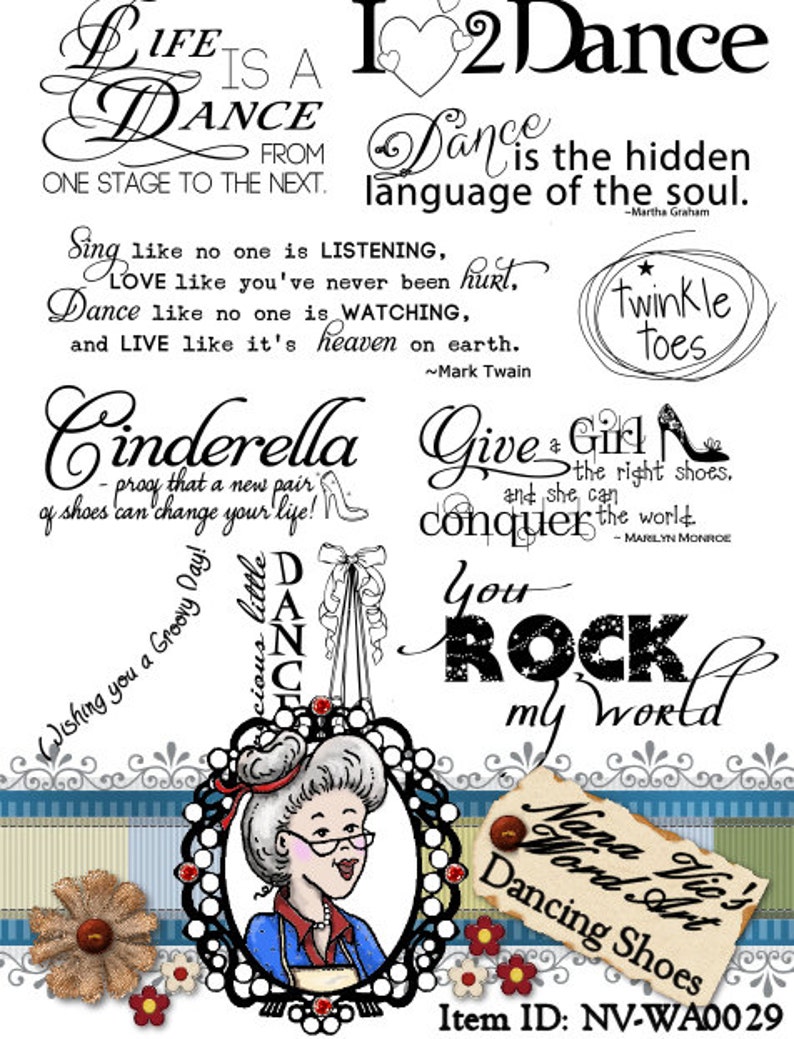 LIFE IS A
DANCE
FROM
ONE STAGE TO THE NEXT.
I 2 Dance
Dance is the hidden
language of the soul.
~Martha Graham
Sing like no one is LISTENING,
LOVE like you've never been hurt,
Dance like no one is WATCHING,
and LIVE like it's heaven on earth.
~Mark Twain
twinkle
toes
Cinderella
- proof that a new pair
of shoes can change your life!
Give a Girl
the right shoes,
and she can
conquer the world.
~ MARILYN MONROE
Wishing you a Groovy Day!
little
DANCE
You
ROCK
my world
Nana Vic's
Word Art
Dancing Shoes
Item ID: NV-WA0029